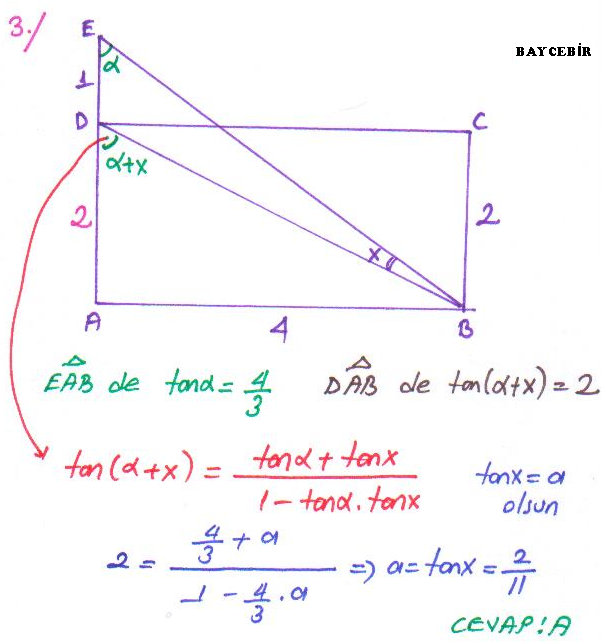 3./
BAYCEBİR
E
α
1
D
C
α+x
2
x
2
A
4
B
EAB de tanα = 4/3
DAB de tan(α+x) = 2
tan(α+x) = tanα + tanx / 1 - tanα . tanx
tanx = a
olsun
2 = 4/3 + a / 1 - 4/3 . a => a = tanx = 2/11
CEVAP : A